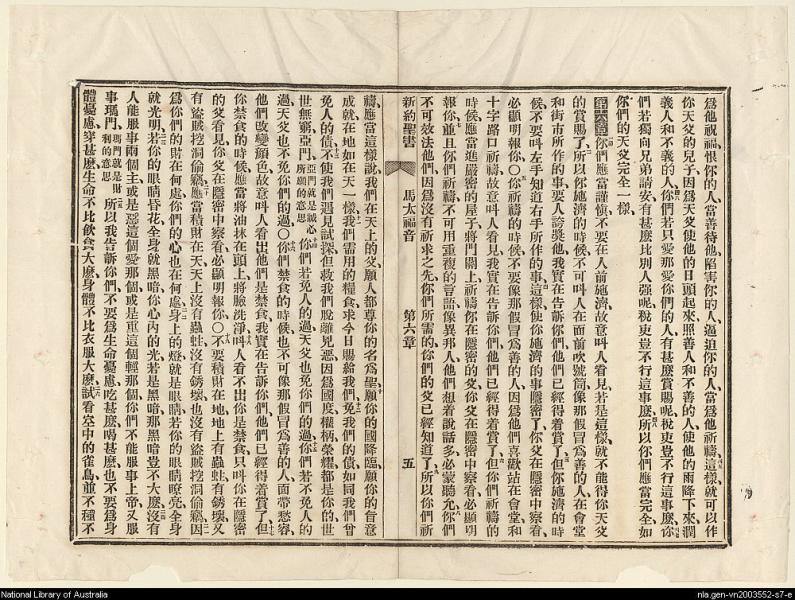 爲他祝福、恨你的人、當善待他、陷害你的人、逼迫你的人、當爲他祈禱、這樣、就可以作
你天父的兒子、因爲天父使他的日頭起來、照善人和不善的人、使他的雨降下來、潤
義人和不義的人、你們若只愛那愛你們的人、有甚麽賞賜呢、稅吏豈不行這事麽、你
們若獨向兄弟請安、有甚麽比別人強呢、稅吏豈不行這事麽、所以你們應當完全、如
你們的天父完全一樣、
第六章 你們應當謹愼、不要在人前施濟、故意叫人看見、若是這樣、就不能得你天父
的賞賜了、所以你施濟的時候、不可叫人在面前吹號筒、像那假冒爲善的人、在會堂
和街市所作的事、要人誇獎他、我實在告訴你們、他們已經得着賞了、但你施濟的時
候、不要叫左手知道右手所作的事、這樣使你施濟的事隱密了、你父在隱密中察看、
必顯明報你、○你祈禱的時候、不要像那假冒爲善的人、因爲他們喜歡站在會堂和
十字路口祈禱、故意叫人看見、我實在告訴你們、他們已經得着賞了、但你們祈禱的
時候、應當進嚴密的屋子、將門關上、祈禱你在隱密的父、你父在隱密中察看、必顯明
報你、並且你們祈禱、不可用重複的言語、像異邦人、他們想着說話多、必蒙聽允、你們
不可效法他們、因爲沒有祈求之先、你們所需的、你們的父已經知道了、所以你們祈
新約聖書 馬太福音 第六章 五
禱、應當這樣說、我們在天上的父、願人都尊你的名爲聖、願你的國降臨、願你的旨意
成就、在地如在天一樣、我們需用的糧食、求今日賜給我們、免我們的債、如同我們曾
免人的債、不使我們遇見試探、但救我們脫離兇惡、因爲國度權柄榮耀、都是你的、世
世無窮、亞門、亞門就是誠心所願的意思 你們若免人的過、天父也免你們的過、你們若不免人的
過、天父也不免你們的過、○你們禁食的時候、也不可像那假冒爲善的人、面帶愁容、
他們改變顏色、故意叫人看出他們是禁食、我實在告訴你們、他們已經得着賞了、但
你禁食的時候、應當將油抹在頭上、將臉洗淨、叫人看不出你是禁食、只叫你在隱密
的父看見、你父在隱密中察看、必顯明報你、○不要積財在地、地上有蟲蛀、有銹壞、又
有盜賊挖洞偷竊、應當積財在天、天上沒有蟲蛀、沒有銹壞、也沒有盜賊挖洞偷竊、因
爲你們的財在何處、你們的心也在何處、身上的燈就是眼睛、若你的眼睛瞭亮、全身
就光明、若你的眼睛昏花、全身就黑暗、你心內的光、若是黑暗、那黑暗豈不大麽、沒有
人能服事兩個主、或是惡這個愛那個、或是重這個輕那個、你們不能服事上帝、又服
事瑪門、瑪門就是財利的意思 所以我告訴你們、不要爲生命憂慮、吃甚麽、喝甚麽、也不要爲身
體憂慮穿甚麽、生命不比飲食大麽、身體不比衣服大麽、試看空中的雀鳥、並不種、不
National Library of Australia
nla.gen-vn2003552-s7-e